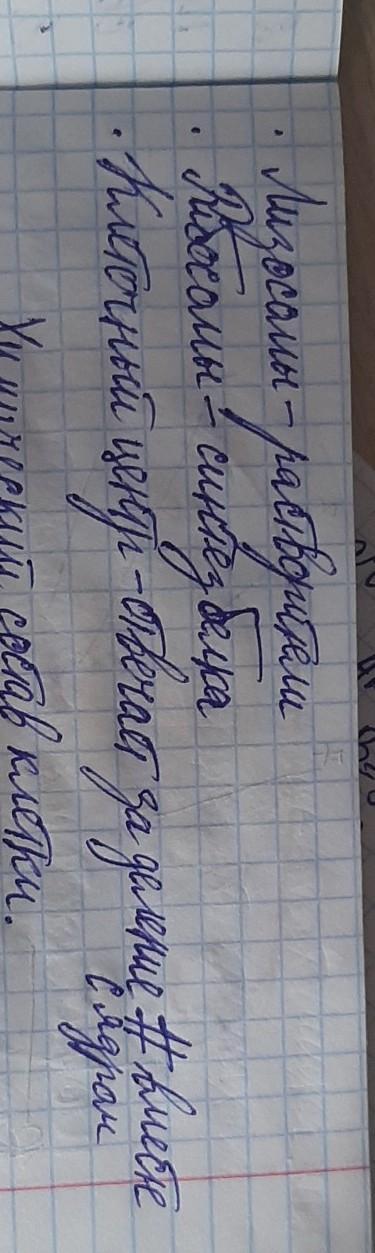 · Лизосомы - растворители
· Рибосомы - синтез белка
· Клеточный центр - отвечает за деление # вместе
с ядром
Химический состав клетки.